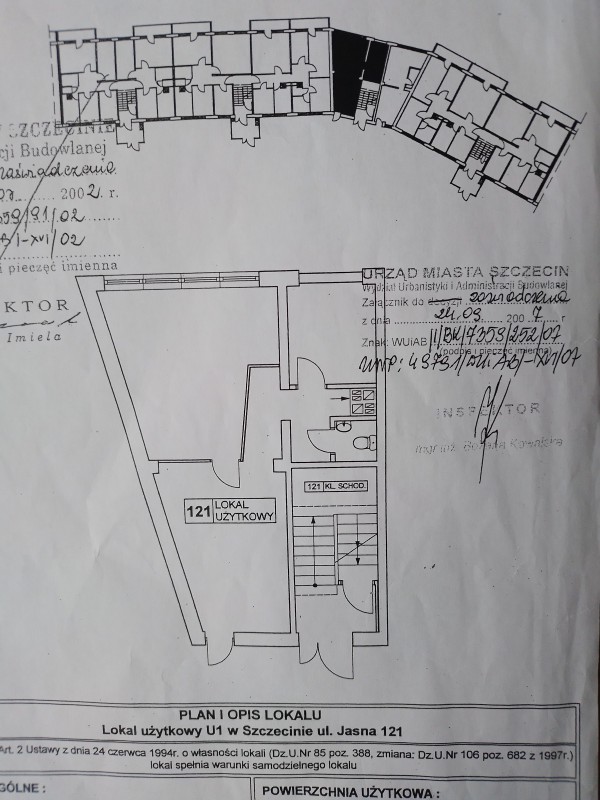 SZCZECINIE
cji Budowlanej
zaświadczenia
2002. r.
359/91/02
I-XVI/02
i pieczęć imienna
KTOR
Imiela
URZĄD MIASTA SZCZECIN
Wydział Urbanistyki i Administracji Budowlanej
Załącznik do decyzji zaświadczenia
z dnia 24.09 2007 r
Znak: WUiAB II/BK/7359/252/07
(podpis i pieczęć imienna)
UNP: 49791/ AB/-XVI/07
INSPEKTOR
mgr inż.
121 KL. SCHOD.
121 LOKAL
UŻYTKOWY
PLAN I OPIS LOKALU
Lokal użytkowy U1 w Szczecinie ul. Jasna 121
Art. 2 Ustawy z dnia 24 czerwca 1994r. o własności lokali (Dz.U.Nr 85 poz. 388, zmiana: Dz.U.Nr 106 poz. 682 z 1997r.)
lokal spełnia warunki samodzielnego lokalu
GÓLNE :
POWIERZCHNIA UŻYTKOWA :